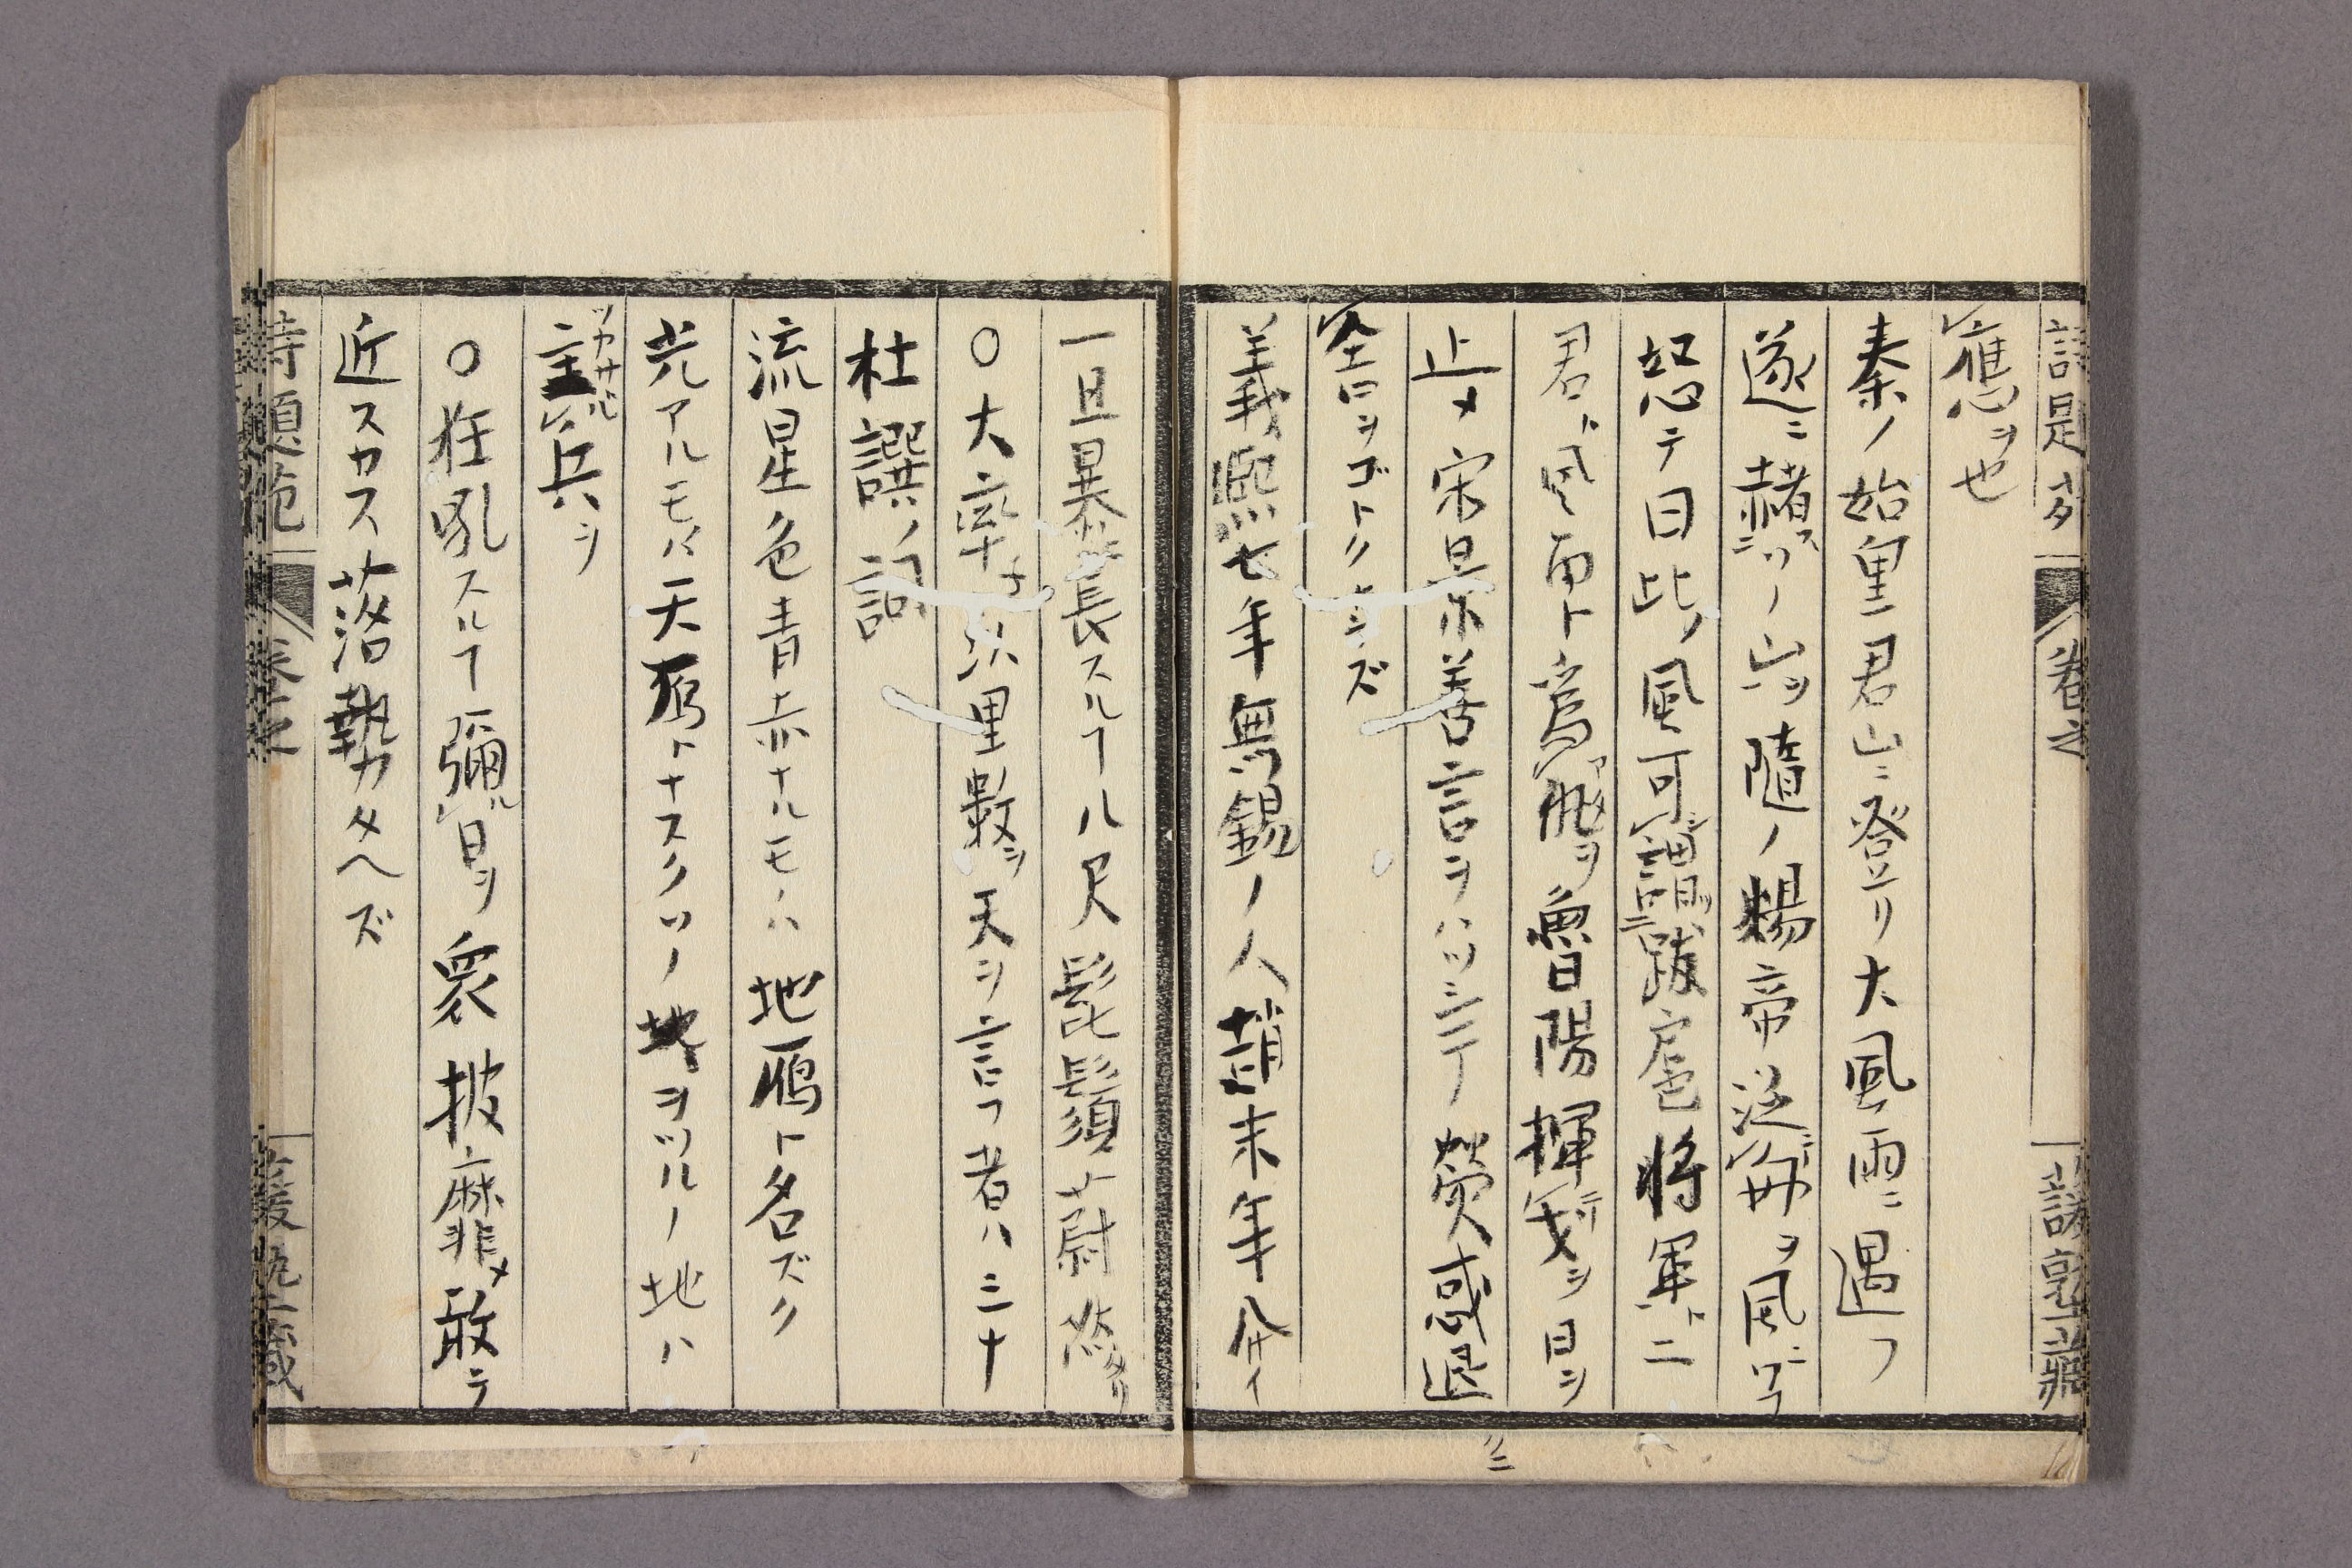 應ヲ也
秦ノ始皇君山ニ登リ大風雨ニ遇フ
遂ニ赭ニスソノ山ヲ隨ノ煬帝泛舟ヲ風ニアフ
怒テ曰此ノ風可謂跋扈將軍ト二
君ガ風雨ト為ヲ魯陽揮戈ヲ日ヲ
止メ宋景善言ヲハツシテ熒惑退
舍ヲゴトクナラズ
義熙七年無錫ノ人趙末年八才
一旦暴長スルヿ八尺髭鬚蔚然タリ
〇大率ネ以里數ヲ天ヲ言フ者ハ三十
杜譔ノ詞
流星色青赤ナルモノハ地鴈ト名ズク
光アルモノハ天鴈トナスクソノ地ヲツルノ地ハ
主ツカサル兵ヲ
〇狂乱スルヿ彌ル日ヲ衆披靡メ敢テ
近スカス落勢カタヘズ
卷之